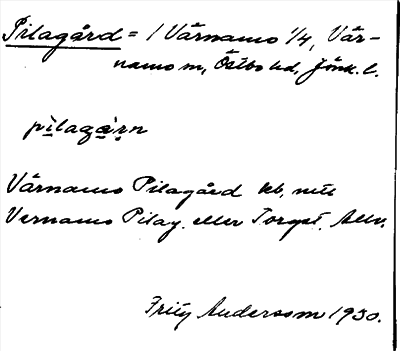 Pilagård = 1 Värnamo 1/4, Vär-
namo sn, Östbo hd, Jönk. l.
pìlagàṛn
Värnamo Pilagård kb, nu
Vernamo Pilag. eller Torgst.
Fritz Andersson 1930.